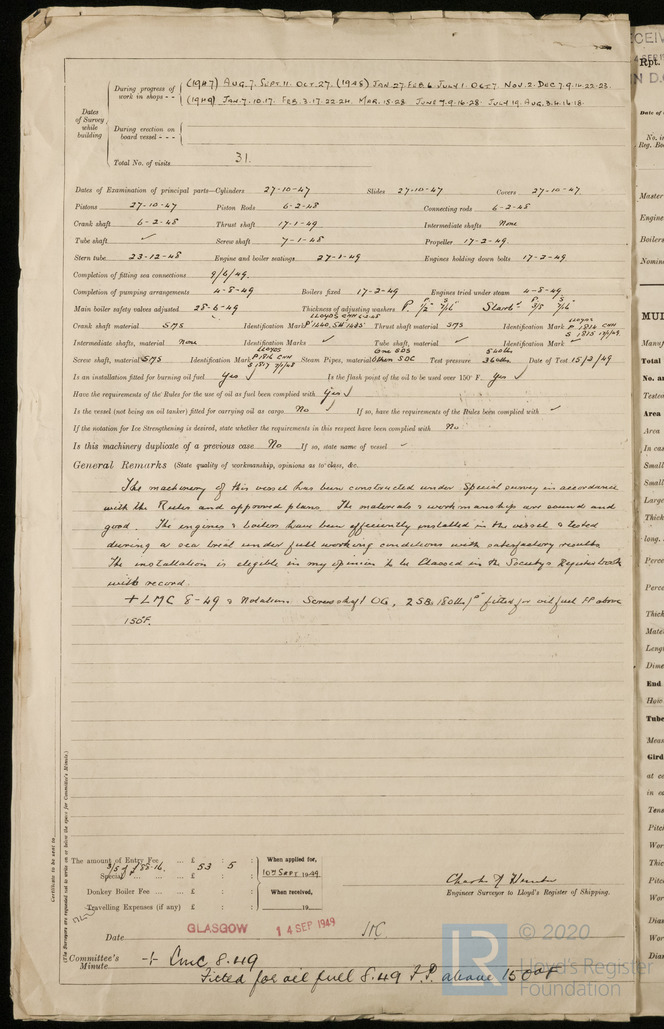 During progress of work in shops - - (1947) AUG. 7. SEPT. 11. OCT. 27. (1948) JAN. 27. FEB 6. JULY 1. OCT 7. NOV. 2. DEC. 7. 9. 14. 22. 23.
(1949) JAN. 7. 10. 17. FEB. 3. 17. 22. 24. MAR. 15. 28. JUNE 7. 9. 16. 28. JULY 19. AUG. 3. 4. 16. 18.
Dates of Survey while building
During erection on board vessel - - -
Total No. of visits 31.
Dates of Examination of principal parts—Cylinders 27-10-47 Slides 27-10-47 Covers 27-10-47
Pistons 27-10-47 Piston Rods 6-2-48 Connecting rods 6-2-48
Crank shaft 6-2-48 Thrust shaft 17-1-49 Intermediate shafts None
Tube shaft ✓ Screw shaft 7-1-48 Propeller 17-2-49
Stern tube 23-12-48 Engine and boiler seatings 27-1-49 Engines holding down bolts 17-2-49
Completion of fitting sea connections 9/6/49
Completion of pumping arrangements 4-8-49 Boilers fixed 17-2-49 Engines tried under steam 4-8-49
Main boiler safety valves adjusted 28-6-49 Thickness of adjusting washers P. P 1/2" S 7/16" Starbd. P 3/8 S 7/16"
Crank shaft material SMS Identification Mark LLOYDS Thrust shaft material SMS Identification Mark LLOYDS P 1814 CHH
Intermediate shafts, material None Identification Marks ✓ Tube shaft, material ✓ Identification Mark ✓
Screw shaft, material SMS Identification Mark LLOYDS P 1816 CHH Steam Pipes, material Test pressure 540 lbs 360 lbs Date of Test 15/2/49
Is an installation fitted for burning oil fuel Yes ✓ Is the flash point of the oil to be used over 150° F. Yes ✓
Have the requirements of the Rules for the use of oil as fuel been complied with Yes ✓
Is the vessel (not being an oil tanker) fitted for carrying oil as cargo No ✓ If so, have the requirements of the Rules been complied with ✓
If the notation for Ice Strengthening is desired, state whether the requirements in this respect have been complied with No
Is this machinery duplicate of a previous case No If so, state name of vessel ✓
General Remarks (State quality of workmanship, opinions as to class, &c.
The machinery of this vessel has been constructed under Special survey in accordance
with the Rules and approved plans. The materials & workmanship are sound and
good. The engines & boilers have been efficiently installed in the vessel & tested
during a sea trial under full working conditions with satisfactory results.
The installation is eligible in my opinion to be Classed in the Society's Register book
with record.
+ LMC 8-49 & Notation. Screwshaft OG, 2SB. 180 lbs/□" fitted for oil fuel FP above
150°F.
The amount of Entry Fee ... £ : :
Special ... £ 53 : 5 :
Donkey Boiler Fee ... £ : :
Travelling Expenses (if any) £ : :
When applied for, 10th SEPT. 1949
When received, 19
Engineer Surveyor to Lloyd's Register of Shipping.
Date GLASGOW 14 SEP 1949
Committee's Minute + LMC 8.49
Fitted for oil fuel 8.49 F.P. above 150°F
Certificate to be sent to
(The Surveyors are requested not to write on or below the space for Committee's Minute.)
LR © 2020 Lloyd's Register Foundation
Rpt.
Date of
No. i
Reg. Bo
Master
Engine
Boilers
Nomin
MUL
Manuf
Total
No. n
Teste
Area
Area
In cas
Small
Small
Large
Thick
long.
Perce
Perce
Thick
Mate
Leng
Dime
End
How
Tube
Mean
Gird
at ce
in ce
Tens
Pitch
Wor
Thic
Pitch
Wor
Diam
Wor
Dian